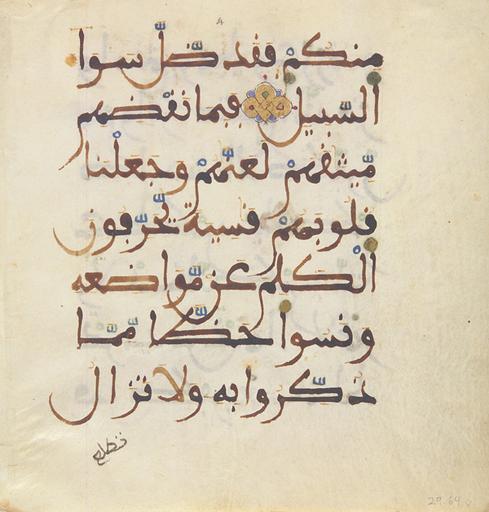 منكم فقد ضّلّ سوا
السّبيل فبما نقضهم
مّيثقهم لعنّهم وجعلنا
قلوبهم قسية يحّرّفون
الكلم عن مّواضعه
ونسوا حظّا مّمّا
ذكّروا به ولا تزال
تطلع